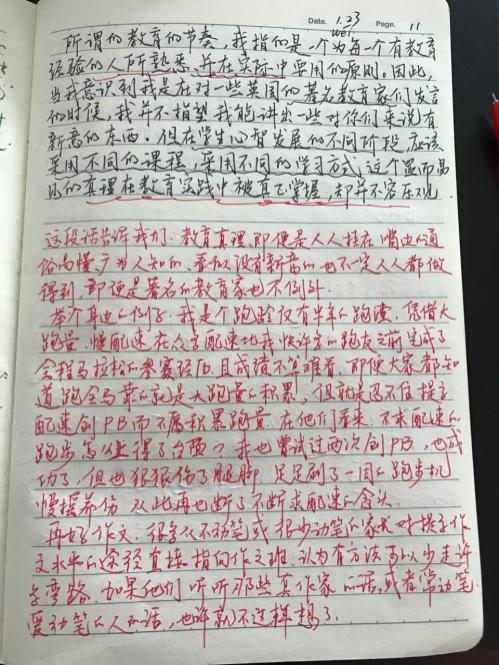 Date. 1.23 Page. 11
wei
所谓的教育的节奏，我指的是一个为每一个有教育
经验的人所熟悉并在实际中采用的原则。因此，
当我意识到我是在对一些英国的著名教育家们发言
的时候，我并不指望我能讲出一些对你们来说有
新意的东西。但在学生心智发展的不同阶段，应该
采用不同的课程，采用不同的学习方式，这个显而易
见的真理在教育实践中被真正掌握，却并不容乐观
这段话告诉我们，教育真理，即便是人人挂在嘴边的通
俗易懂、广为人知的、看似没有新意的也不一定人人都做
得到，即便是著名的教育家也不例外。
举个身边的例子，我是个跑龄仅有半年的跑渣，凭借大
跑量、慢配速在众多配速比我快许多的跑友之前完成了
全程马拉松的参赛经历，且成绩不算难看，即使大家都知
道跑全马靠的就是大跑量的积累，但就是忍不住提高
配速创PB而不愿积累跑量，在他们看来，不求配速的
跑步怎么上得了台面？我也曾试过两次创PB，也成
功了，但也狠狠伤了腿脚，足足刷了一周的跑步机
慢摇养伤，从此再也断了不断求配速的念头。
再如作文，很多从不动笔或很少动笔的家长对孩子作
文水平的途径直接指向作文班，认为有方法可以少走许
多弯路，如果他们听听那些真作家的话，或者常动笔、
爱动笔的人的话，也许就不这样想了。